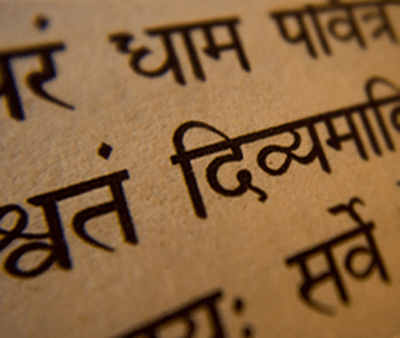 परं धाम पवित्र
श्वतं दिव्यमादि
यः सर्वे